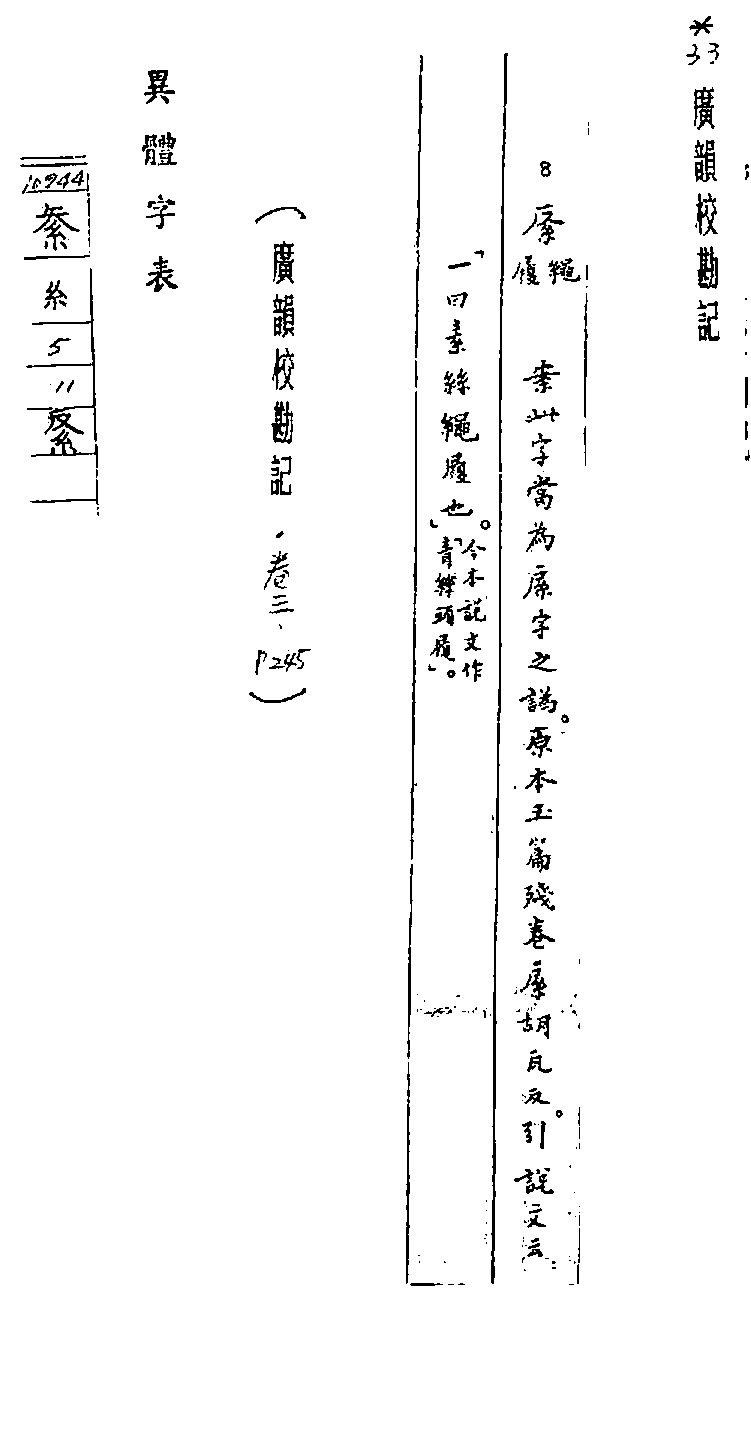 *33 廣韻校勘記
8 㕆 繩履 案此字當為㕆字之譌。原本玉篇殘卷㕆胡瓦反。引說文云
「一曰素絲繩履也」。今本說文作「青絲頭履」。
(廣韻校勘記.卷三、P245)
異體字表
10944 糸 5 〃